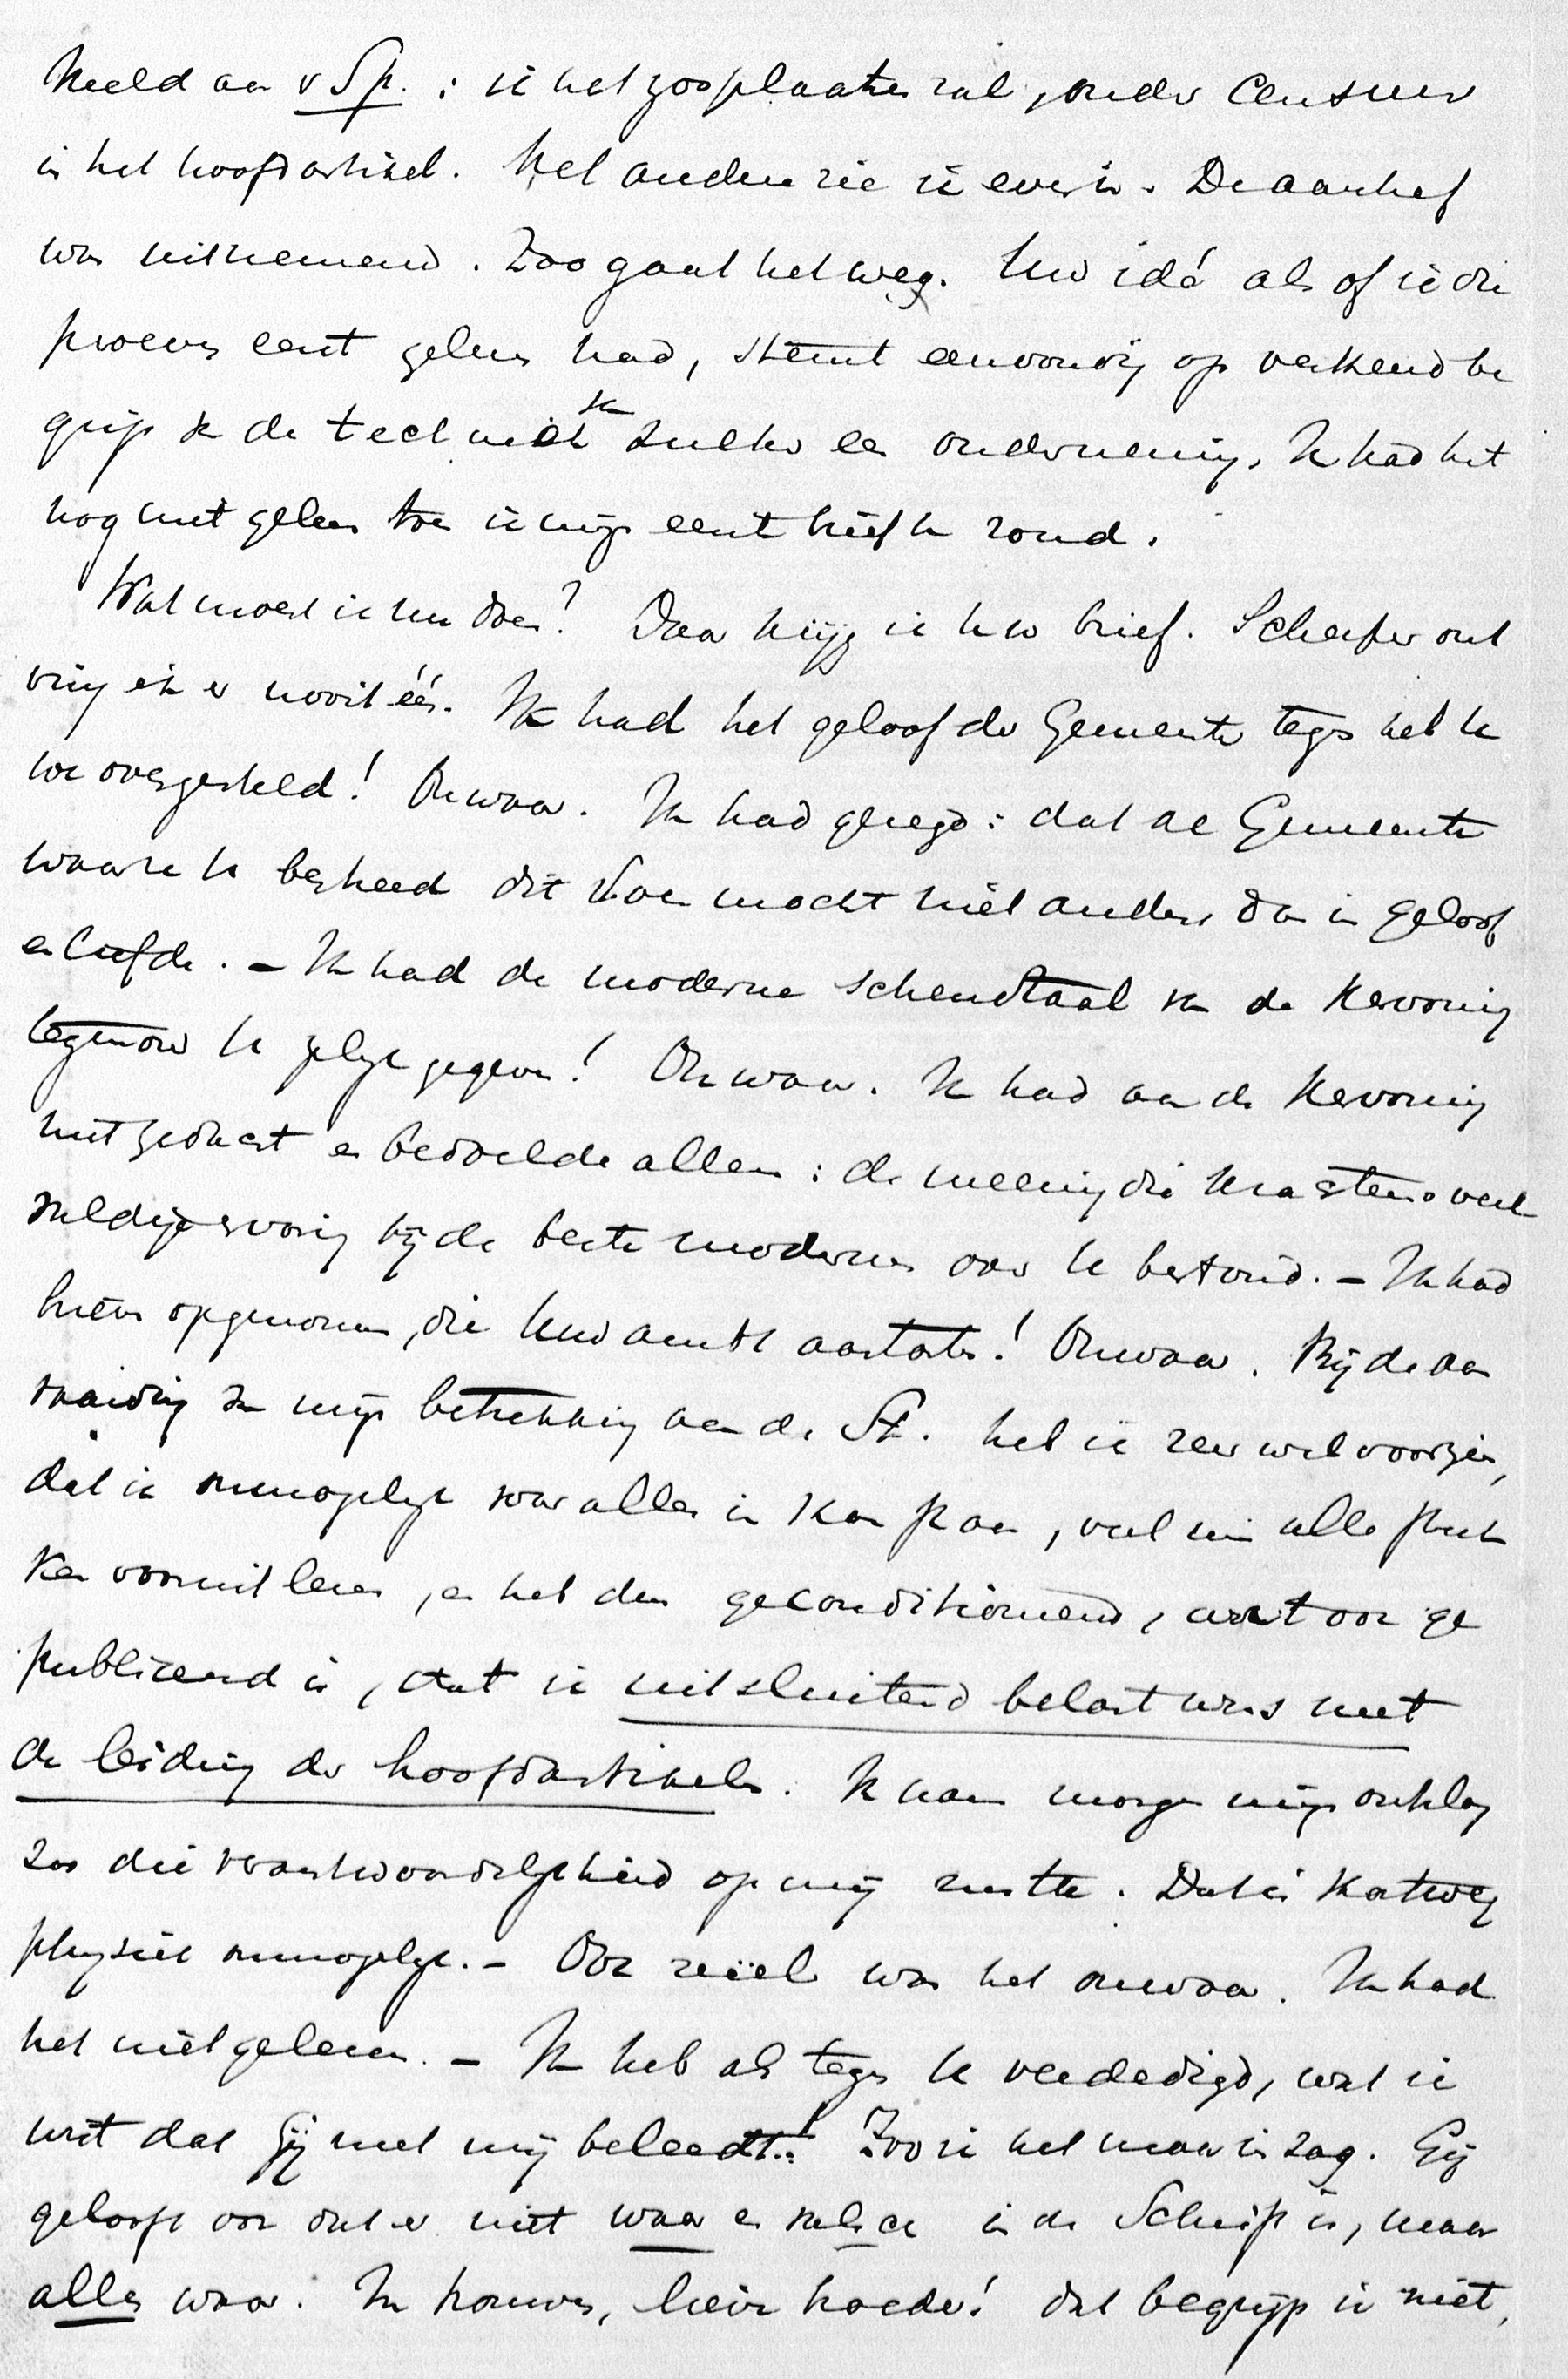 meld aan v Sp. : ik het zoo plaatsen zal, onder Censuur
in het hoofdartikel. Het andere zie ik even in. De aanhef
was uitnemend. Zoo gaat het weg. Uw idé als of ik die
proeven eerst gelezen had, steunt eenvoudig op verkeerd be
grip van de techniek van zulk een onderneming. Ik had het
nog niet gelezen toen ik mijn eerst hief in rond.
Wat moest ik nu doen? Daar krijg ik Uw brief. Scherper ont
ving ik er nooit één. Ik had het geloof der Gemeente tegen het Uwe
overgesteld! Onwaar. Ik had gezegd: dat de Gemeente
waar U bescheid dit doen mocht niet anders dan in geloof
en liefde. – Ik had de moderne schendtaal van de Hervorming
tegenover U gelijk gegeven! Onwaar. Ik had aan de Hervorming
niet gedacht en bedoelde alleen: de meening die
bij de beste modernen over U bestond. – Ik had
brieven opgenomen, die Uw ambt aantasten! Onwaar. Bij de aan
vaarding van mijn betrekking aan de St. heb ik zeer wel voorzien,
dat ik onmogelijk voor alles in kon staan, veel min alle stuk
ken vooruit lezen, en heb dus geconditioneerd, wat ook ge
publiceerd is, dat ik uitsluitend belast was met
de leiding der hoofdartikelen. Ik nam morgen mijn ontslag
zoo die verantwoordelijkheid op mij rustte. Dat is kortweg
physiek onmogelijk. – Ook reëel was het onwaar. Ik had
het niet gelezen. – Ik heb als tegen U verdedigd, wat ik
wist dat Gij met mij beleedt! Zoo ik het maar in zag. Gij
gelooft ook dat er niet waar en valsch in de Schrift is, maar
alles waar. In trouwe, lieve broeder! dat begrijp ik niet,